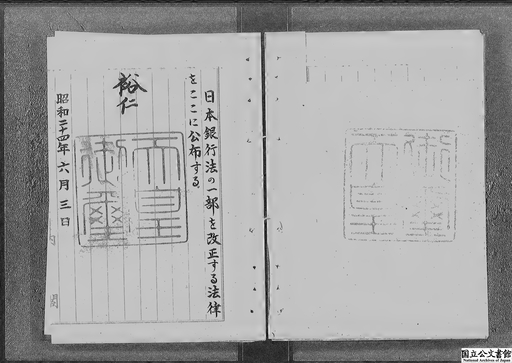 日本銀行法の一部を改正する法律
をここに公布する
裕仁
天皇
御璽
昭和二十四年六月三日
内閣
国立公文書館
National Archives of Japan